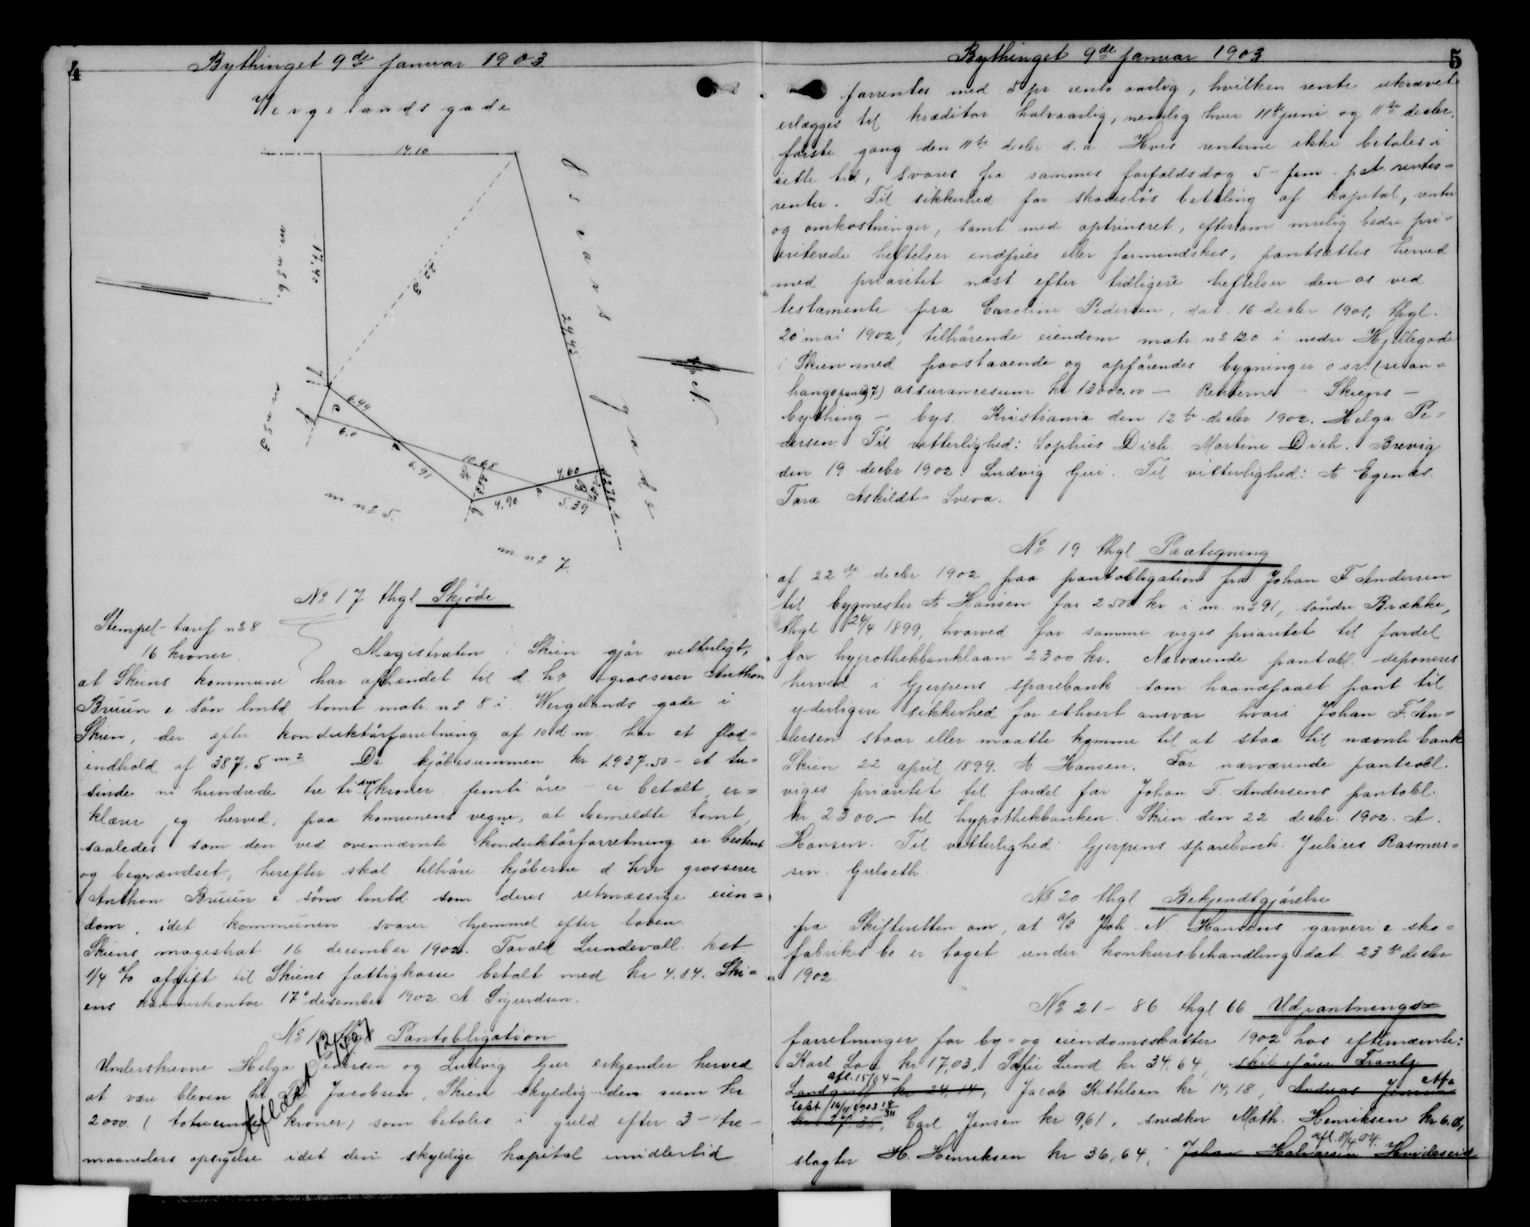 4
Bythinget 9de Januar 1903
Wergelandsgade
14.10
17.40
22.3
24.43
m n2 6.
m n2 3
m n2 5.
m n2 7.
gade
6.44
6.0
6.91
10.68
4.60
4.90
5.39
No 17 thgl Skjöde
Stempel-taxf n2 8
16 kroner.
Magistraten i Skien gjör vetterligt,
at Skiens kommune har afhændet til d. hr grosserer Anthon
Bruun & sön lmtd tomt matr. n2 8 i Wergelands gade i
Skien, der efter konduktörforretning af 10 d m. har et flad-
indhold af 387.5 m2 Da kjöbesummen kr 1.937.50 - et tu-
sinde ni hundrede tre ti syv kroner femti öre - er betalt, er-
klærer jeg herved, paa komunens vegne, at bemeldte tomt,
saaledes som den ved ovennævnte konduktörforretning er bestemt
og begrændset, herefter skal tilhöre kjöberne d hrr grosserer
Anthon Bruun & söns lmtd som deres retmæssige eien-
dom, idet kommunen svarer hjemmel efter loven
Skiens magistrat 16 december 1902. Tarald Lundevall. kst
1/4 % afgift til Skiens fattigkasse betalt med kr 4.84. Ski-
ens kæmnerkontor 17de desember 1902 A. Sigurdsen.
No 18 thgl Pantobligation
Aflæst 12/
Underskrevne Helga Pedersen og Ludvig Gui erkjender herved
at være bleven hr Jacobsen, Skien skyldig den sum kr
2000 (totusende kroner) som betales i guld efter 3 - tre -
maaneders opsigelse idet den skyldige kapital imidlertid
5
Bythinget 9de Januar 1903
forrentes med 5 pr cento aarlig, hvilken rente ukrævet
erlægges til kreditor halvaarlig, nemlig hver 11te juni og 11te decbr.
förste gang den 11te decbr d.a Hvis renterne ikke betales i
rette tid, svares fra sammes forfaldsdag 5 - fem - pct rentes-
renter. Til sikkerhed for skadeslös betaling af kapital, renter
og omkostninger, samt med optrinsret, eftersom mulig bedre pri-
oriterede heftelser indfries eller formindskes, pantsættes herved
med prioritet næst efter tidligere heftelser den os ved
testamente fra Caroline Pedersen, dat. 16 decbr 1901, thgl.
20 mai 1902, tilhörende eiendom matr. n2 120 i nedre Hjellegade
i Skien med paastaaende og opförendes bygninger o.s.v. (se an-
hang pant 97) assurancesum kr 13000.00 - Renderne - Skiens -
bything - bys. Kristiania den 12te decbr 1902. Helga Pe-
dersen. Til vitterlighed: Sophus Dich. Martine Dich. Brevig
den 19 decbr 1902. Ludvig Gui. Til vitterlighed: A Egenæs
Tara Askildt-Sveva.
No 19 thgl Paategning
af 22de decbr 1902 paa pantobligation fra Johan F Andersen
til bygmester A Hansen for 2500 kr i m. n2 91, söndre Brække,
thgl 24/4 1899, hvorved for samme viges prioritet til fordel
for hypothekbanklaan 2300 kr. Nærværende pantobl. deponeres
herved i Gjerpens sparebank som haandfaaet pant til
yderligere sikkerhed for ethvert ansvar hvori Johan F. An-
dersen staar eller maatte komme til at staa til nævnte bank
Skien 22 april 1899. A Hansen. For nærværende pantobl.
viges prioritet til fordel for Johan F. Andersens pantobl.
kr 2300.- til hypothekbanken. Skien den 22 decbr. 1902. A.
Hansen. Til vitterlighed: Gjerpens sparebank. Julius Rasmus-
sen. Gulseth.
No 20 thgl Bekjendtgjörelse
fra Skifteretten om, at A/S Joh. N. Hansens garveri & sko-
fabriks bo er taget under konkursbehandling dat. 23de decbr
1902.
No 21 - 86 thgl 66 Udpantnings-
forretninger for by- og eiendomsskatter 1902 hos eftnævnte:
Karl Lou kr 17,03, Sofie Lund kr 34.64, Frantz
afl. 15/04 -
Landgraff kr 24,14, Jacob Kittilsen kr 14,18, Andreas Jensen
kr 27.30, Carl Jensen kr 9,61, snedker Math. Henriksen kr 6.01,
afl. 8/4 04.
slagter H. Henriksen kr 36,64, Johan Halvorsen Hvideseid